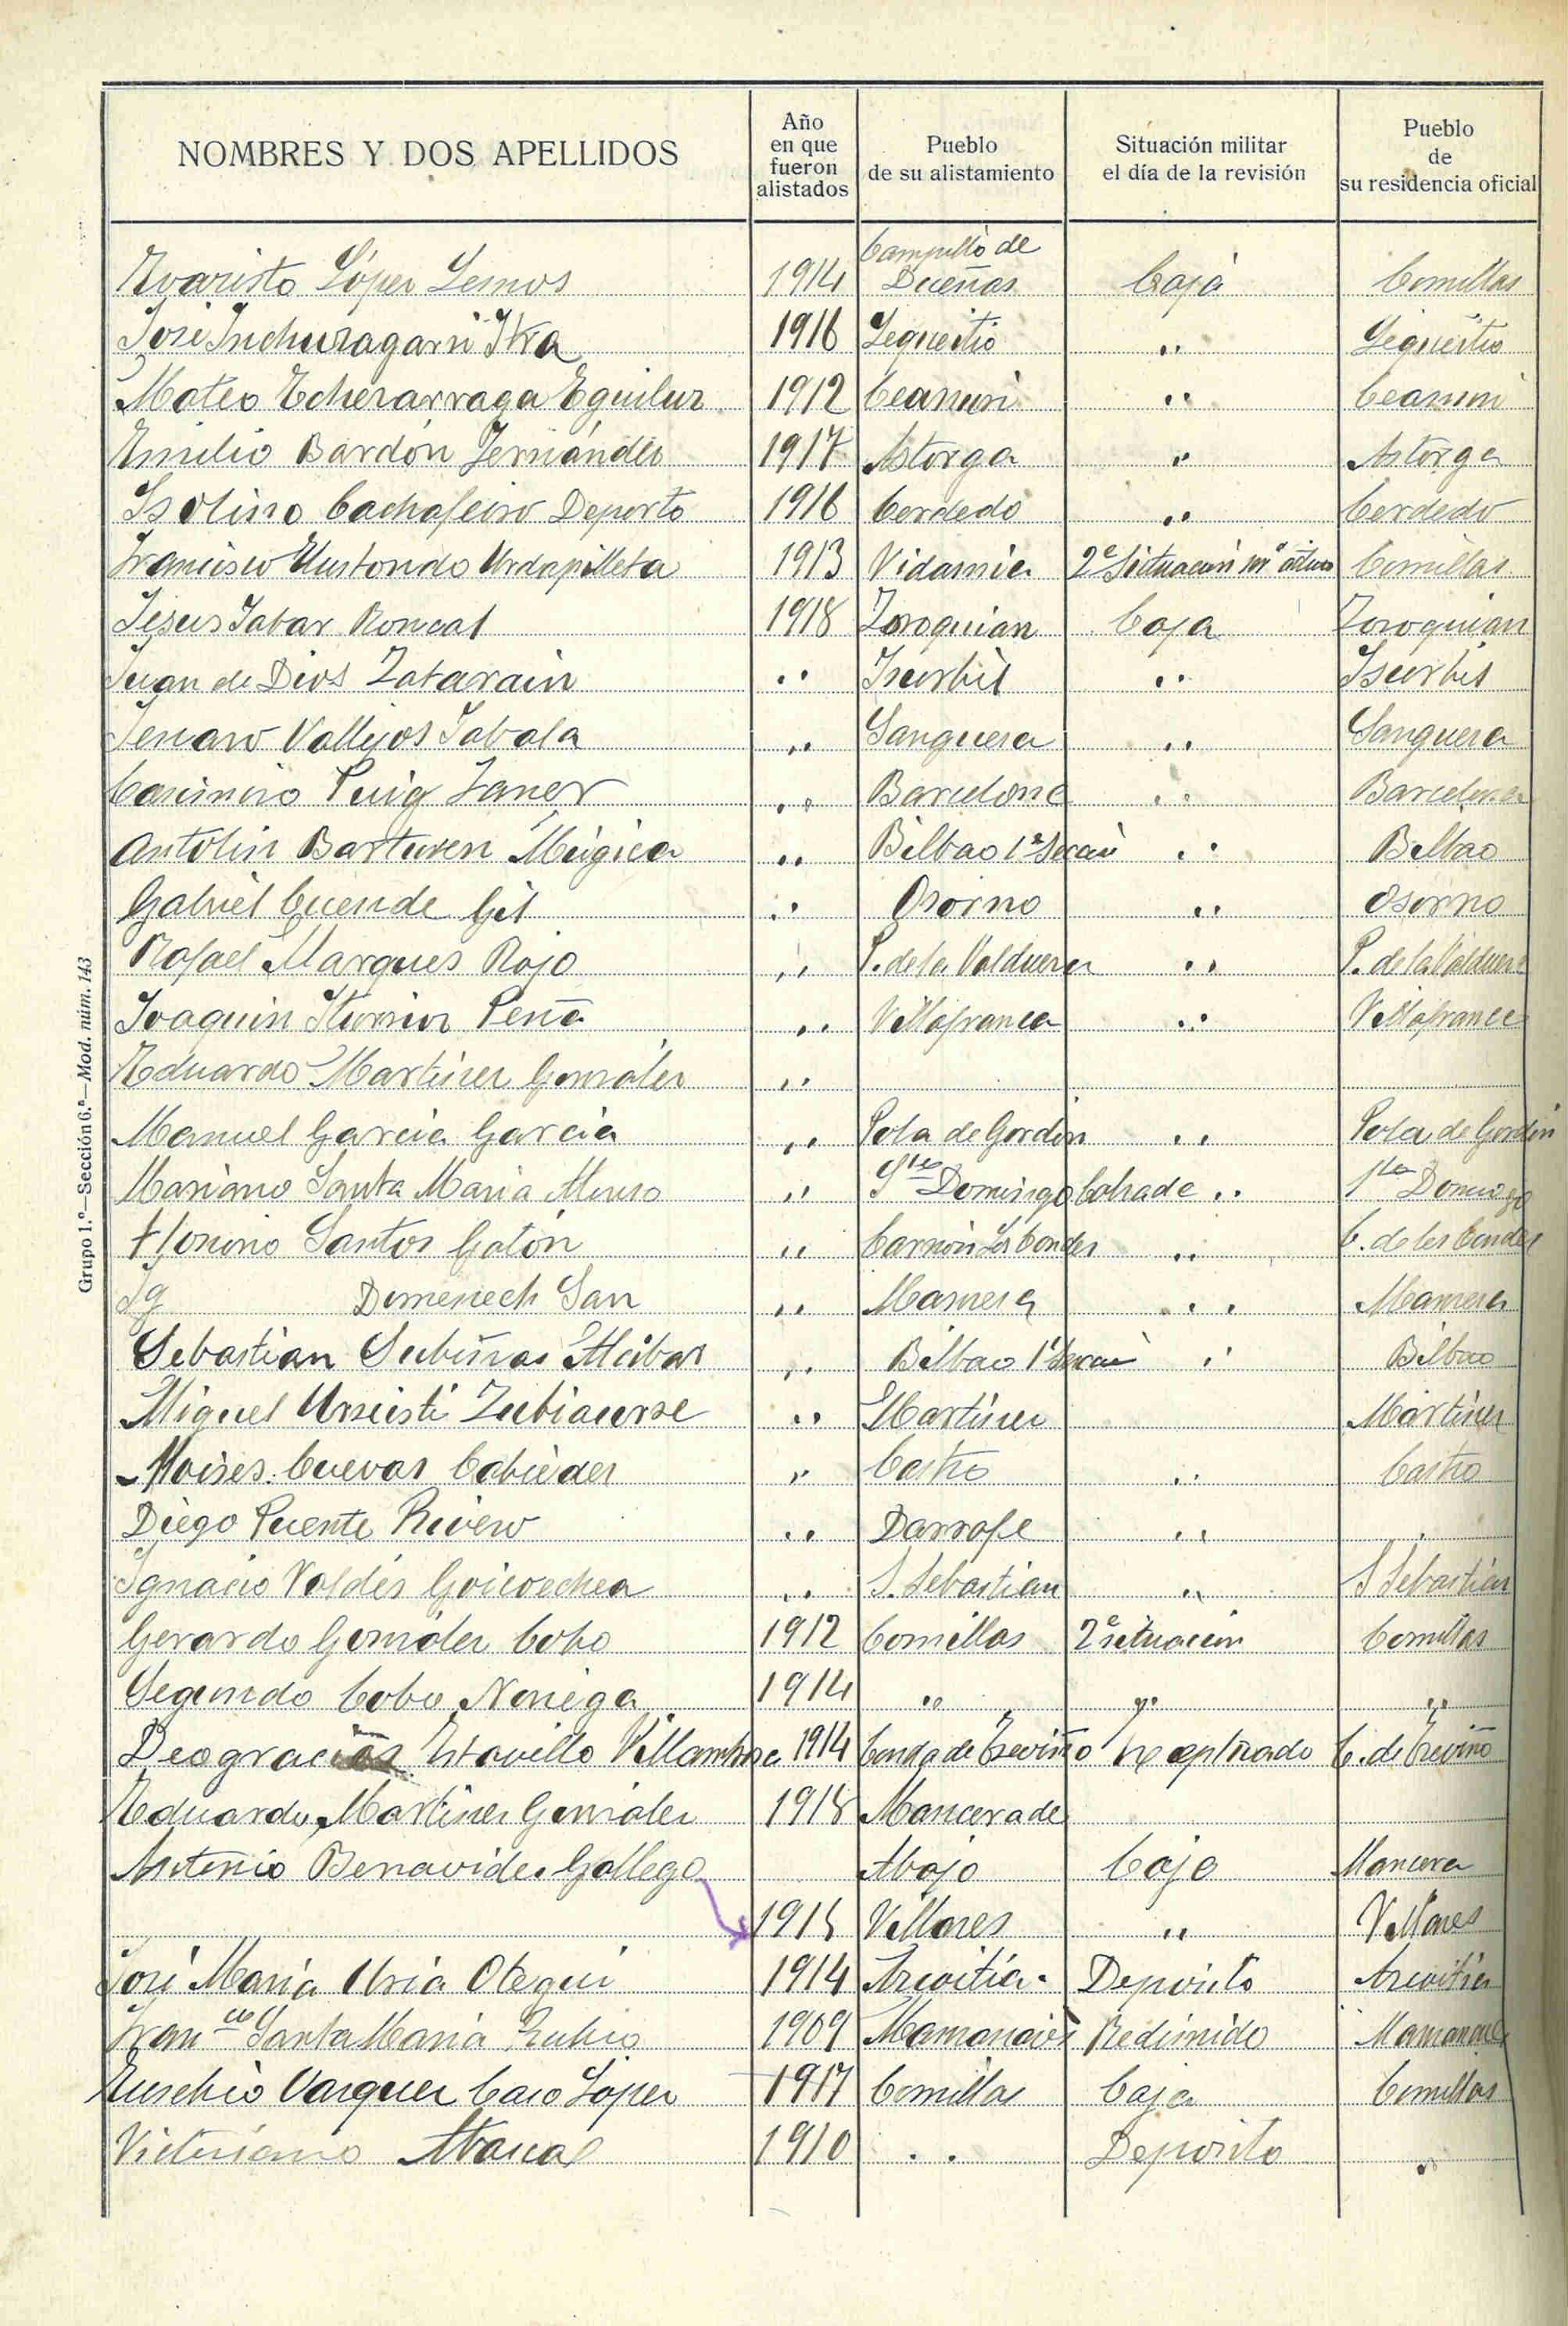 NOMBRES Y DOS APELLIDOS | Año en que fueron alistados | Pueblo de su alistamiento | Situación militar el día de la revisión | Pueblo de su residencia oficial
Evaristo López Lemus 1914 Campillo de Dueñas Caja Comillas
José Inchuragarri 1916 Lequeitio ,, Lequeitio
Mateo Echevarraga Eguiluz 1912 Ceanuri ,, Ceanuri
Emilio Bardón Fernández 1917 Astorga ,, Astorga
Isolino Cachafeiro Deporto 1916 Cerdedo ,, Cerdedo
Francisco Urdapilleta 1913 Vidania 2ª Situación Comillas
Jesus Tabar Roncal 1918 Zoroquian Caja Zoroquian
Juan de Dios Zatarain ,, Iscorbil ,, Iscorbil
Jenaro Vallejos Zabala ,, Sanguesa ,, Sanguesa
Casimiro Puig Janer ,, Barcelona ,, Barcelona
Antolín Barturen Múgica ,, Bilbao 1ª ,, Bilbao
Gabriel Cuende Gil ,, Osorno ,, Osorno
Rafael Marques Rojo ,, P. de la Valduerna ,, P. de la Valduerna
Joaquin Iturrioz Peña ,, Villafranca ,, Villafranca
Eduardo Martinez González ,,
Manuel Garcia Garcia ,, Pola de Gordón ,, Pola de Gordón
Mariano Santa Maria ,, Sto Domingo Calzada ,, Sto Domingo
Honorio Santos Gatón ,, Carrión Los Condes ,, C. de los Condes
Ig Domenech San ,, Manresa ,, Manresa
Sebastian Subiñas Alcibar ,, Bilbao 1ª ,, Bilbao
Miguel Urreisti Zubiaurre ,, Martinez Martinez
Moises Cuevas Cabiedes ,, Castro ,, Castro
Diego Puente Rivero ,, Darrofe ,, .
Ignacio Valdés Goicoechea ,, S. Sebastian ,, S Sebastian
Gerardo González Cobo 1912 Comillas 2ª situación Comillas
Segundo Cobo Noriega 1914 ,, ,, ,,
Deogracias Estavillo 1914 Condado de Treviño C. de Treviño
Eduardo Martinez González 1918 Mancera de
Antonio Benavides Gallego Abajo Caja Mancera
1918 Villares ,, Villares
José Maria Uria Otegui 1914 Azcoitia. Deposito Azcoitia
Franco Santa Maria Rubio 1909 Redimido
Eusebio Vazquez Caso López 1917 Comillas Caja Comillas
Victoriano Abascal 1910 ,, Deposito ,,
Grupo 1.º—Sección 6.ª—Mod. núm. 143